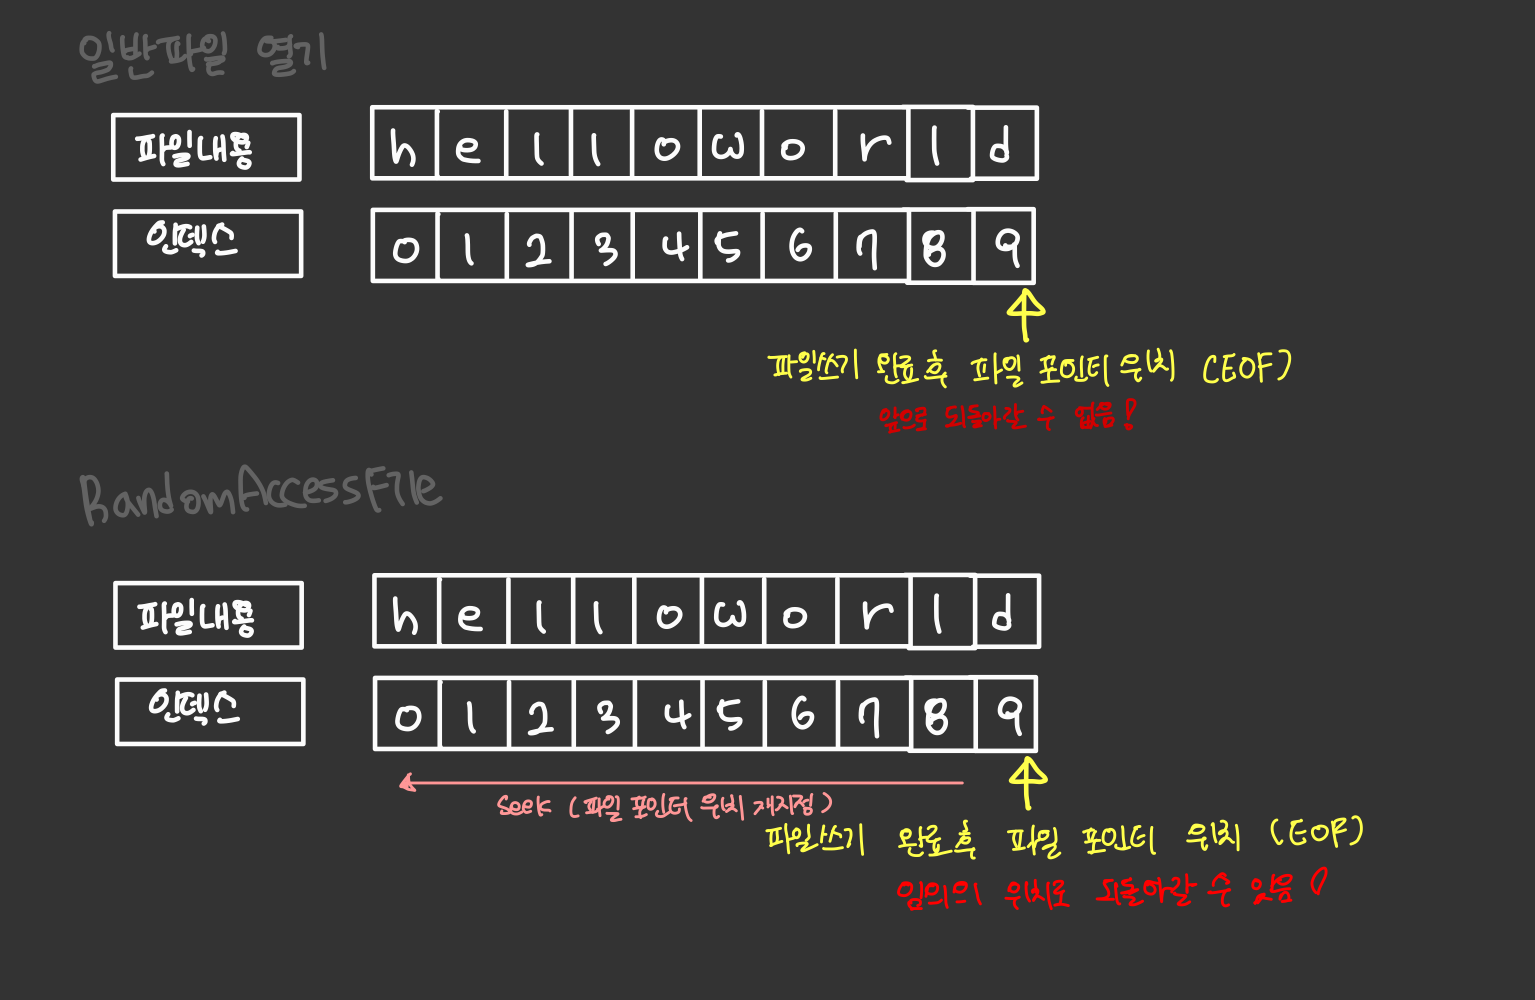 일반파일 열기
파일내용 h e l l o w o r l d
인덱스 0 1 2 3 4 5 6 7 8 9
파일쓰기 완료후 파일 포인터 위치 (EOF)
앞으로 되돌아갈 수 없음!
RandomAccessFile
파일내용 h e l l o w o r l d
인덱스 0 1 2 3 4 5 6 7 8 9
seek (파일 포인터 위치 재지정)
파일쓰기 완료후 파일 포인터 위치 (EOF)
임의의 위치로 되돌아갈 수 있음!